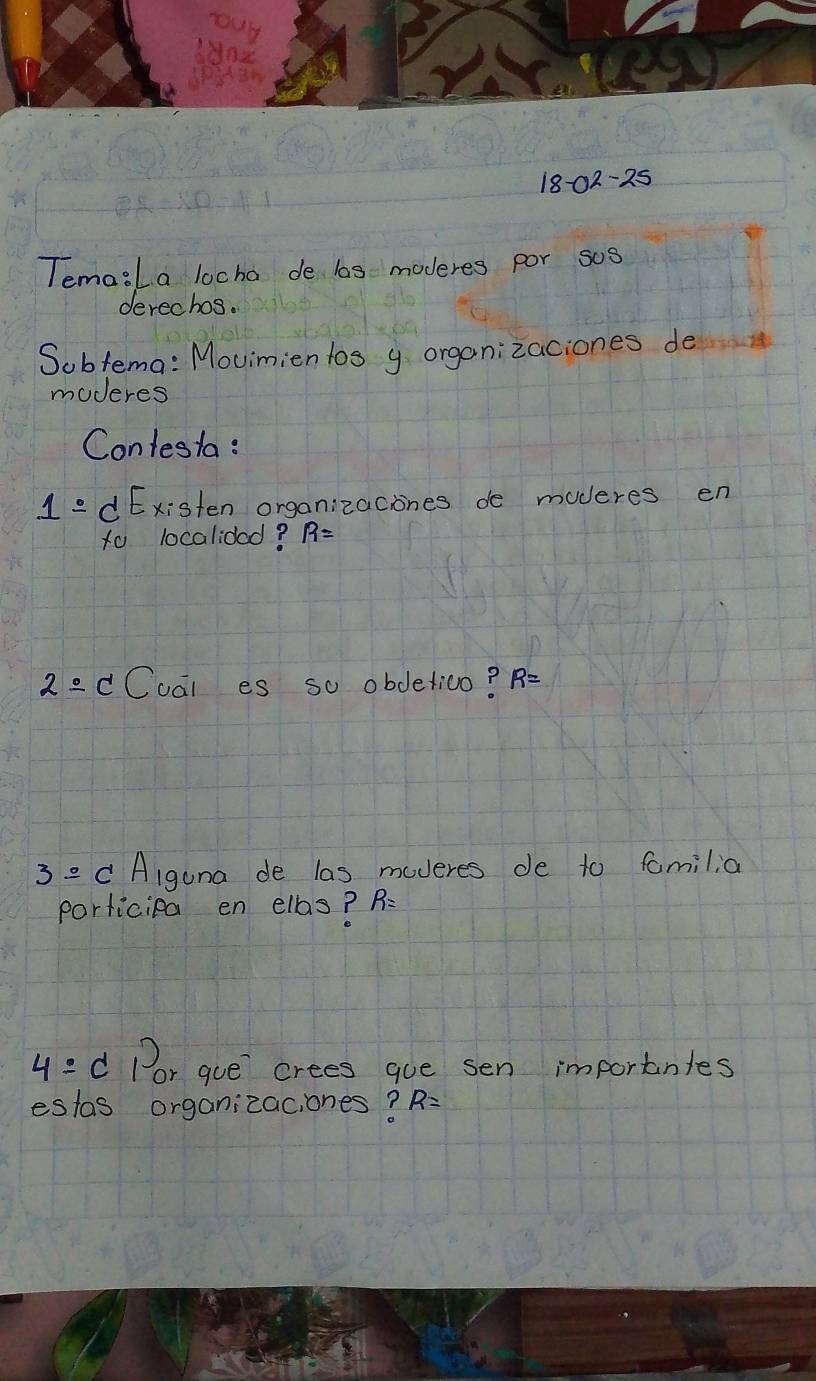 Ana
18-02-25
Tema: La lucha de las mujeres por sus
derechos.
Subtema: Movimientos y organizaciones de
mujeres
Contesta:
1= ¿Existen organizaciones de mujeres en
tu localidad? R=
2= ¿Cuál es su objetivo? R=
3= ¿Alguna de las mujeres de tu familia
participa en ellas? R=
4= ¿Por qué crees que sen importantes
estas organizaciones? R=